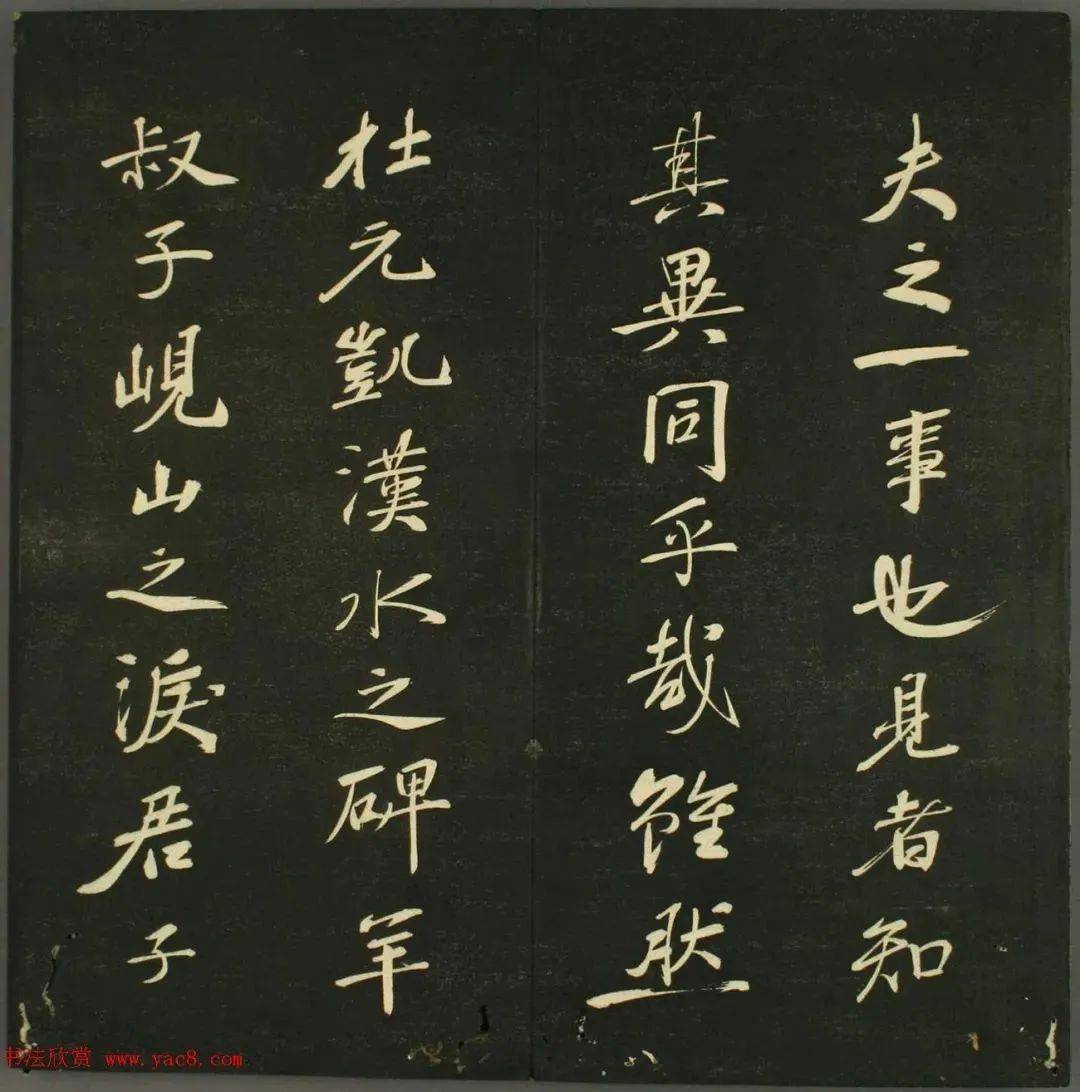 夫之一事也見者知
其異同乎哉雖然
杜元凱漢水之碑羊
叔子峴山之淚君子
书法欣赏 www.yac8.com